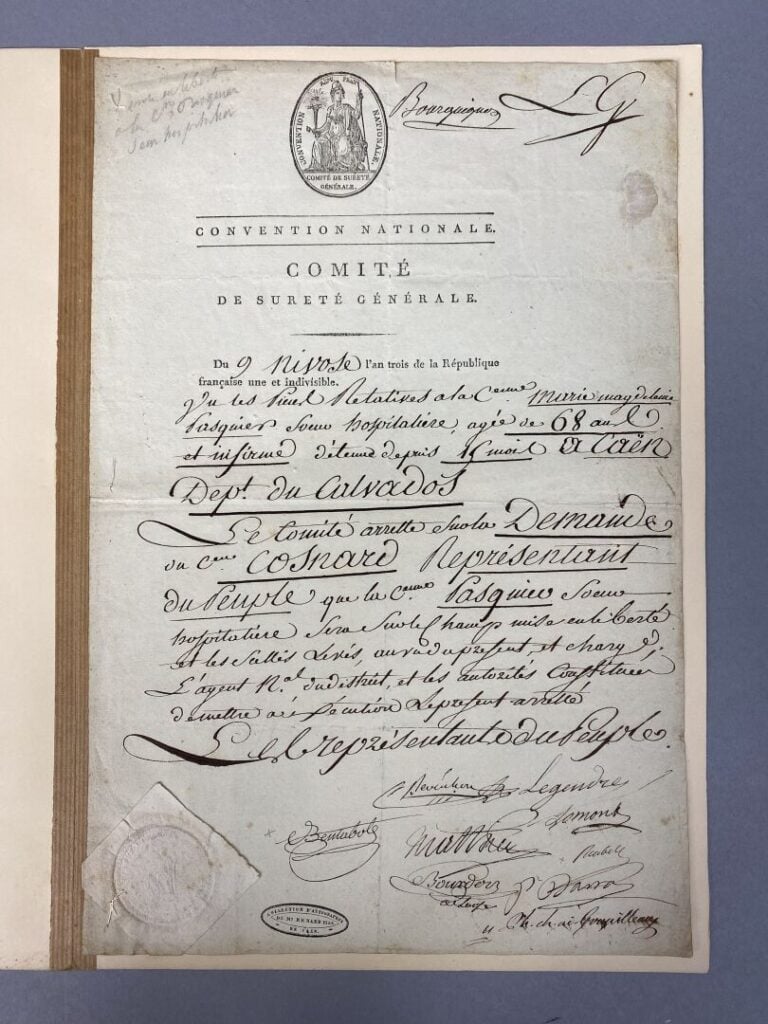 Bourguignon
L G
CONVENTION NATIONALE.
COMITÉ DE SURETÉ
GÉNÉRALE.
CONVENTION NATIONALE.
COMITÉ
DE SURETÉ GÉNÉRALE.
Du 9 Nivose l'an trois de la République
française une et indivisible.
Vu les Pieces Relatives a la C.enne Marie magdelaine
Pasquier Soeur hospitalière, agée de 68 ans
et infirme détenue depuis 15 mois a Caën
Dept. du Calvados
Le Comité arrette Sur la Demande
du C.en Cosnard Représentant
du Peuple que la C.enne Pasquier Soeur
hospitalière Sera Sur le Champ mise en liberté
et les Scellés Levés, au vu du present, et charge
L'agent N.al du district, et les autorités Constituées
de mettre a éxécution Le present arretté
Les représentants du Peuple
Legendre
Bentabole
Mathieu
Lemont
Reubell
Bourdon
de l'oise
Barra
COLLECTION D'AUTOGRAPHES